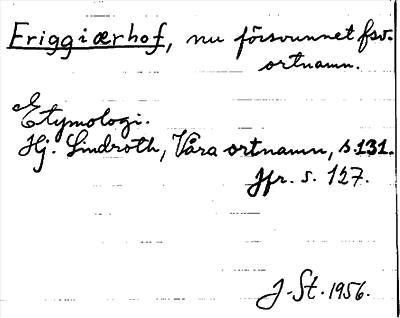 Friggiærhof, nu försvunnet fsv.
ortnamn.
Etymologi.
Hj. Lindroth, Våra ortnamn, s. 131.
Jfr. s. 127.
J. St. 1956.